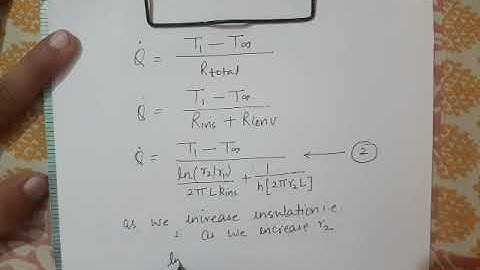 Q̇ = T₁ - T∞ / Rtotal
Q̇ = T₁ - T∞ / Rins + Rconv
Q̇ = T₁ - T∞ / ln(r₂/r₁)/2πLkins + 1/h[2πr₂L] ← 2
as we increase insulation i.e.
as we increase r₂
ln